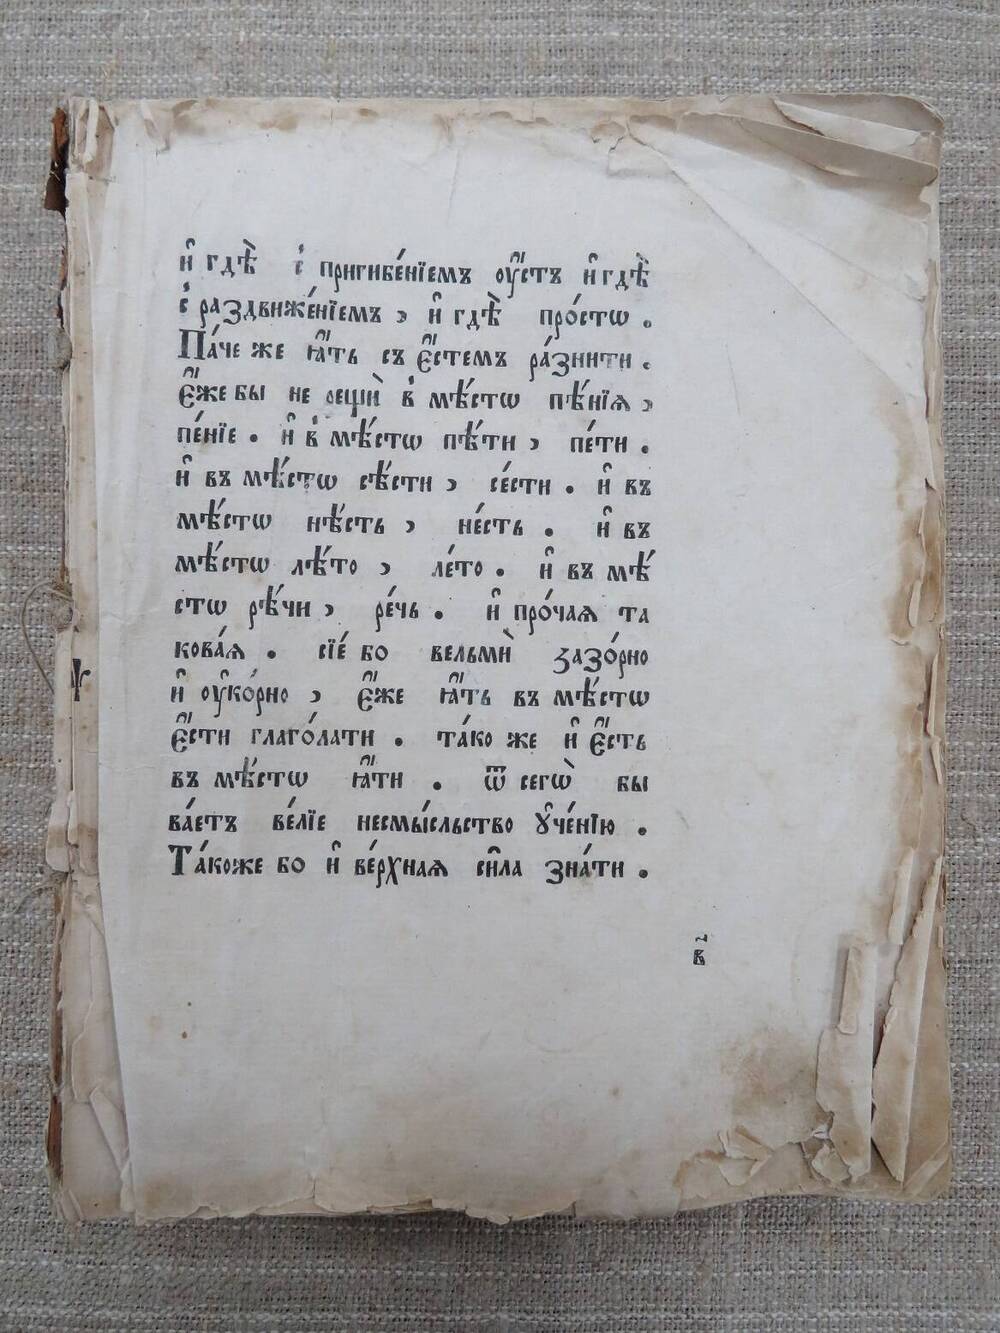 и҆ гдѣ̀ с̾ пригибе́нїемъ оу҆стъ и҆ гдѣ̀
с̾ раздвиже́нїемъ, и҆ гдѣ̀ про́стѡ.
Па́че же ꙗ҆́ть съ є҆́стемъ ра́знити.
є҆́же бы не рещѝ в̾ мѣ́стѡ пѣ́нїѧ,
пе́нїе. и҆ в̾ мѣ́стѡ пѣ́ти, пе́ти.
и҆ въ мѣ́стѡ сѣ́сти, се́сти. и҆ въ
мѣ́стѡ нѣ́сть, не́сть. и҆ въ
мѣ́стѡ лѣ́то, ле́то. и҆ въ мѣ́
стѡ рѣ́чи, ре́чь. и҆ про́чаѧ та
кова́ѧ. сїе́ бо вельмѝ зазо́рно
и҆ оу҆ко́рно, є҆́же ꙗ҆́ть въ мѣ́стѡ
є҆́сти глаго́лати. та́ко же и҆ є҆́сть
въ мѣ́стѡ ꙗ҆́ти. ѿ сегѡ̀ бы
ва́етъ ве́лїе несмы́сльство ᲂу҆че́нїю.
Та́коже бо и҆ ве́рхнаѧ си́ла зна́ти.
в҃